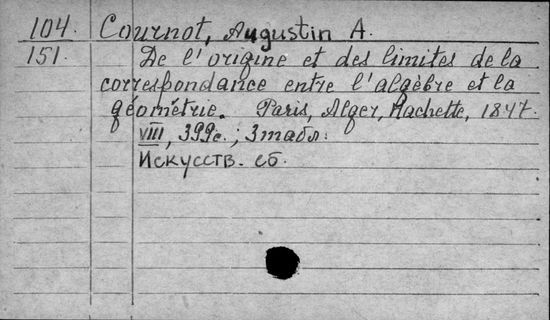 104. Cournot, Augustin A.
151. De l'origine et des limites de la
correspondance entre l'algèbre et la
géométrie. Paris, Alger, Hachette, 1847.
VIII, 399с., 3 табл.
Искусств. сб.